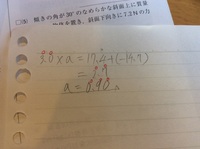 傾きの角が30°のなめらかな斜面上に質量
斜面下向きに7.2Nの力
3.0×a=17.4+(-14.7)
=2.7
a=0.90